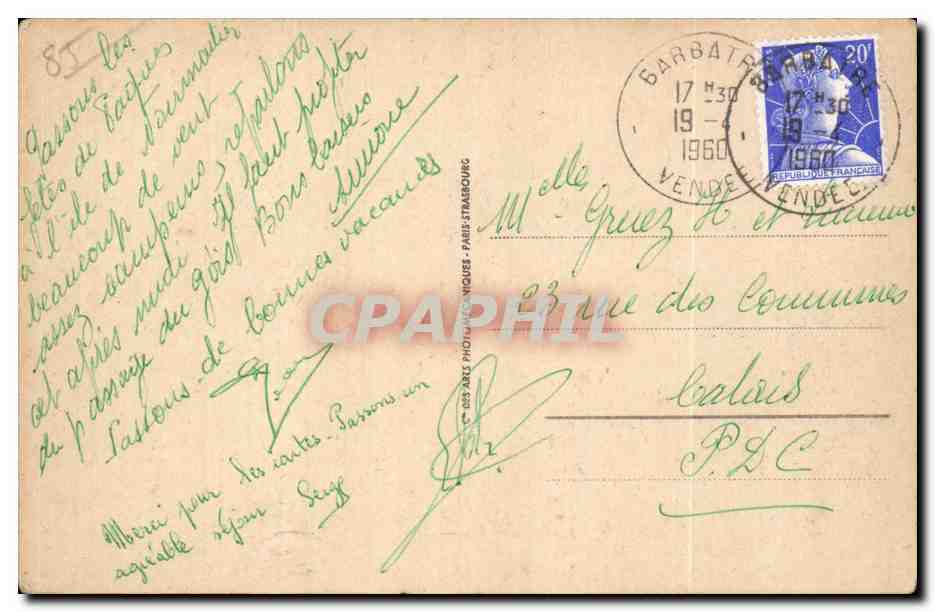 85
Passons les
fêtes de Pâques
à l'île de Noirmoutier
beaucoup de vent,
assez ennuyeux, repartons
cet après midi. Il faut profiter
du passage du gois! Bons baisers
Simone
Passons de bonnes vacances
Merci pour les cartes. Passons un
agréable séjour Serge
Cie DES ARTS PHOTOMÉCANIQUES - PARIS-STRASBOURG
BARBATRE
17 H 30
19 - 4
1960
VENDEE
BARBATRE
17 H 30
19 - 4
1960
VENDEE
20F
REPUBLIQUE FRANÇAISE
Melles
Mr Gruez H. et
23 rue des Communes
Calais
P.D.C
CPAPHIL